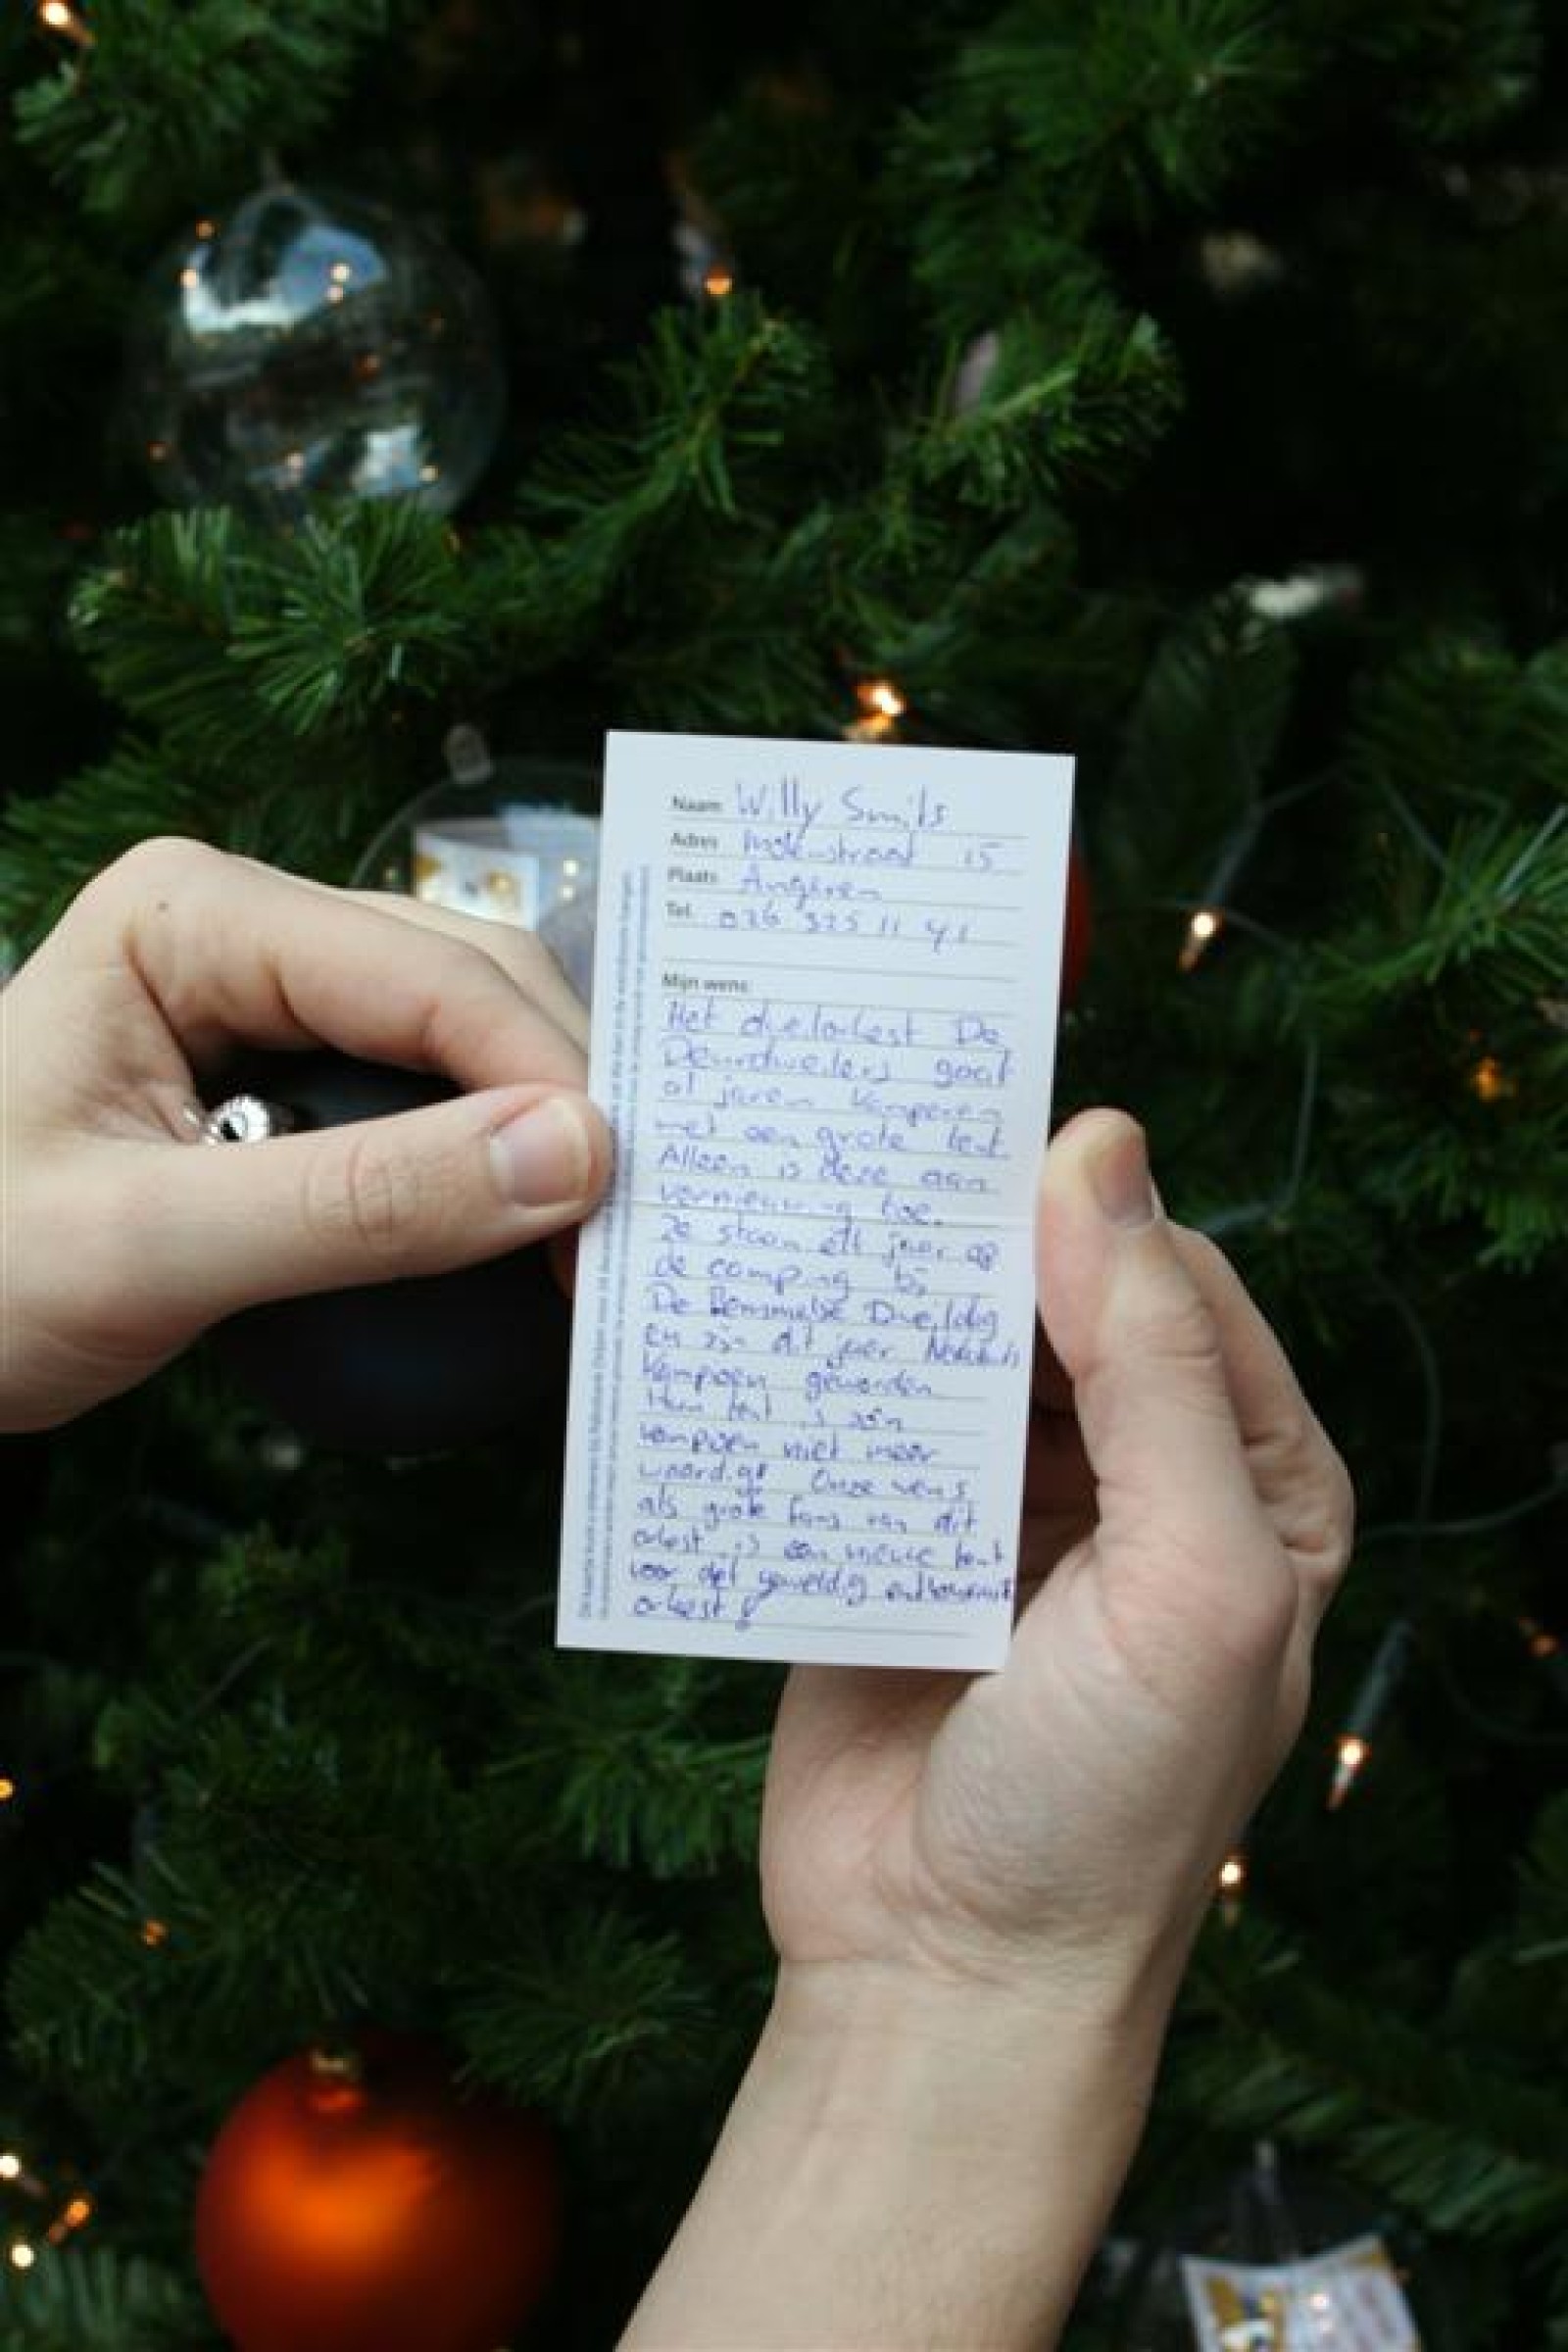 Naam Willy Smits
Adres Molenstraat 15
Plaats Angeren
Tel. 026 325 11 41
Mijn wens:
Het dweilorkest De
Deurdweilers gaat
al jaren kamperen
met een grote tent.
Alleen is deze aan
vernieuwing toe.
Ze staan elk jaar op
de camping bij
De Bemmelse Dweildag
en zijn dit jaar Nederlands
kampoen geworden
Hun tent is zo'n
kampoen niet meer
waardig! Onze wens
als grote fans van dit
orkest is een nieuwe tent
voor dit geweldig
orkest!